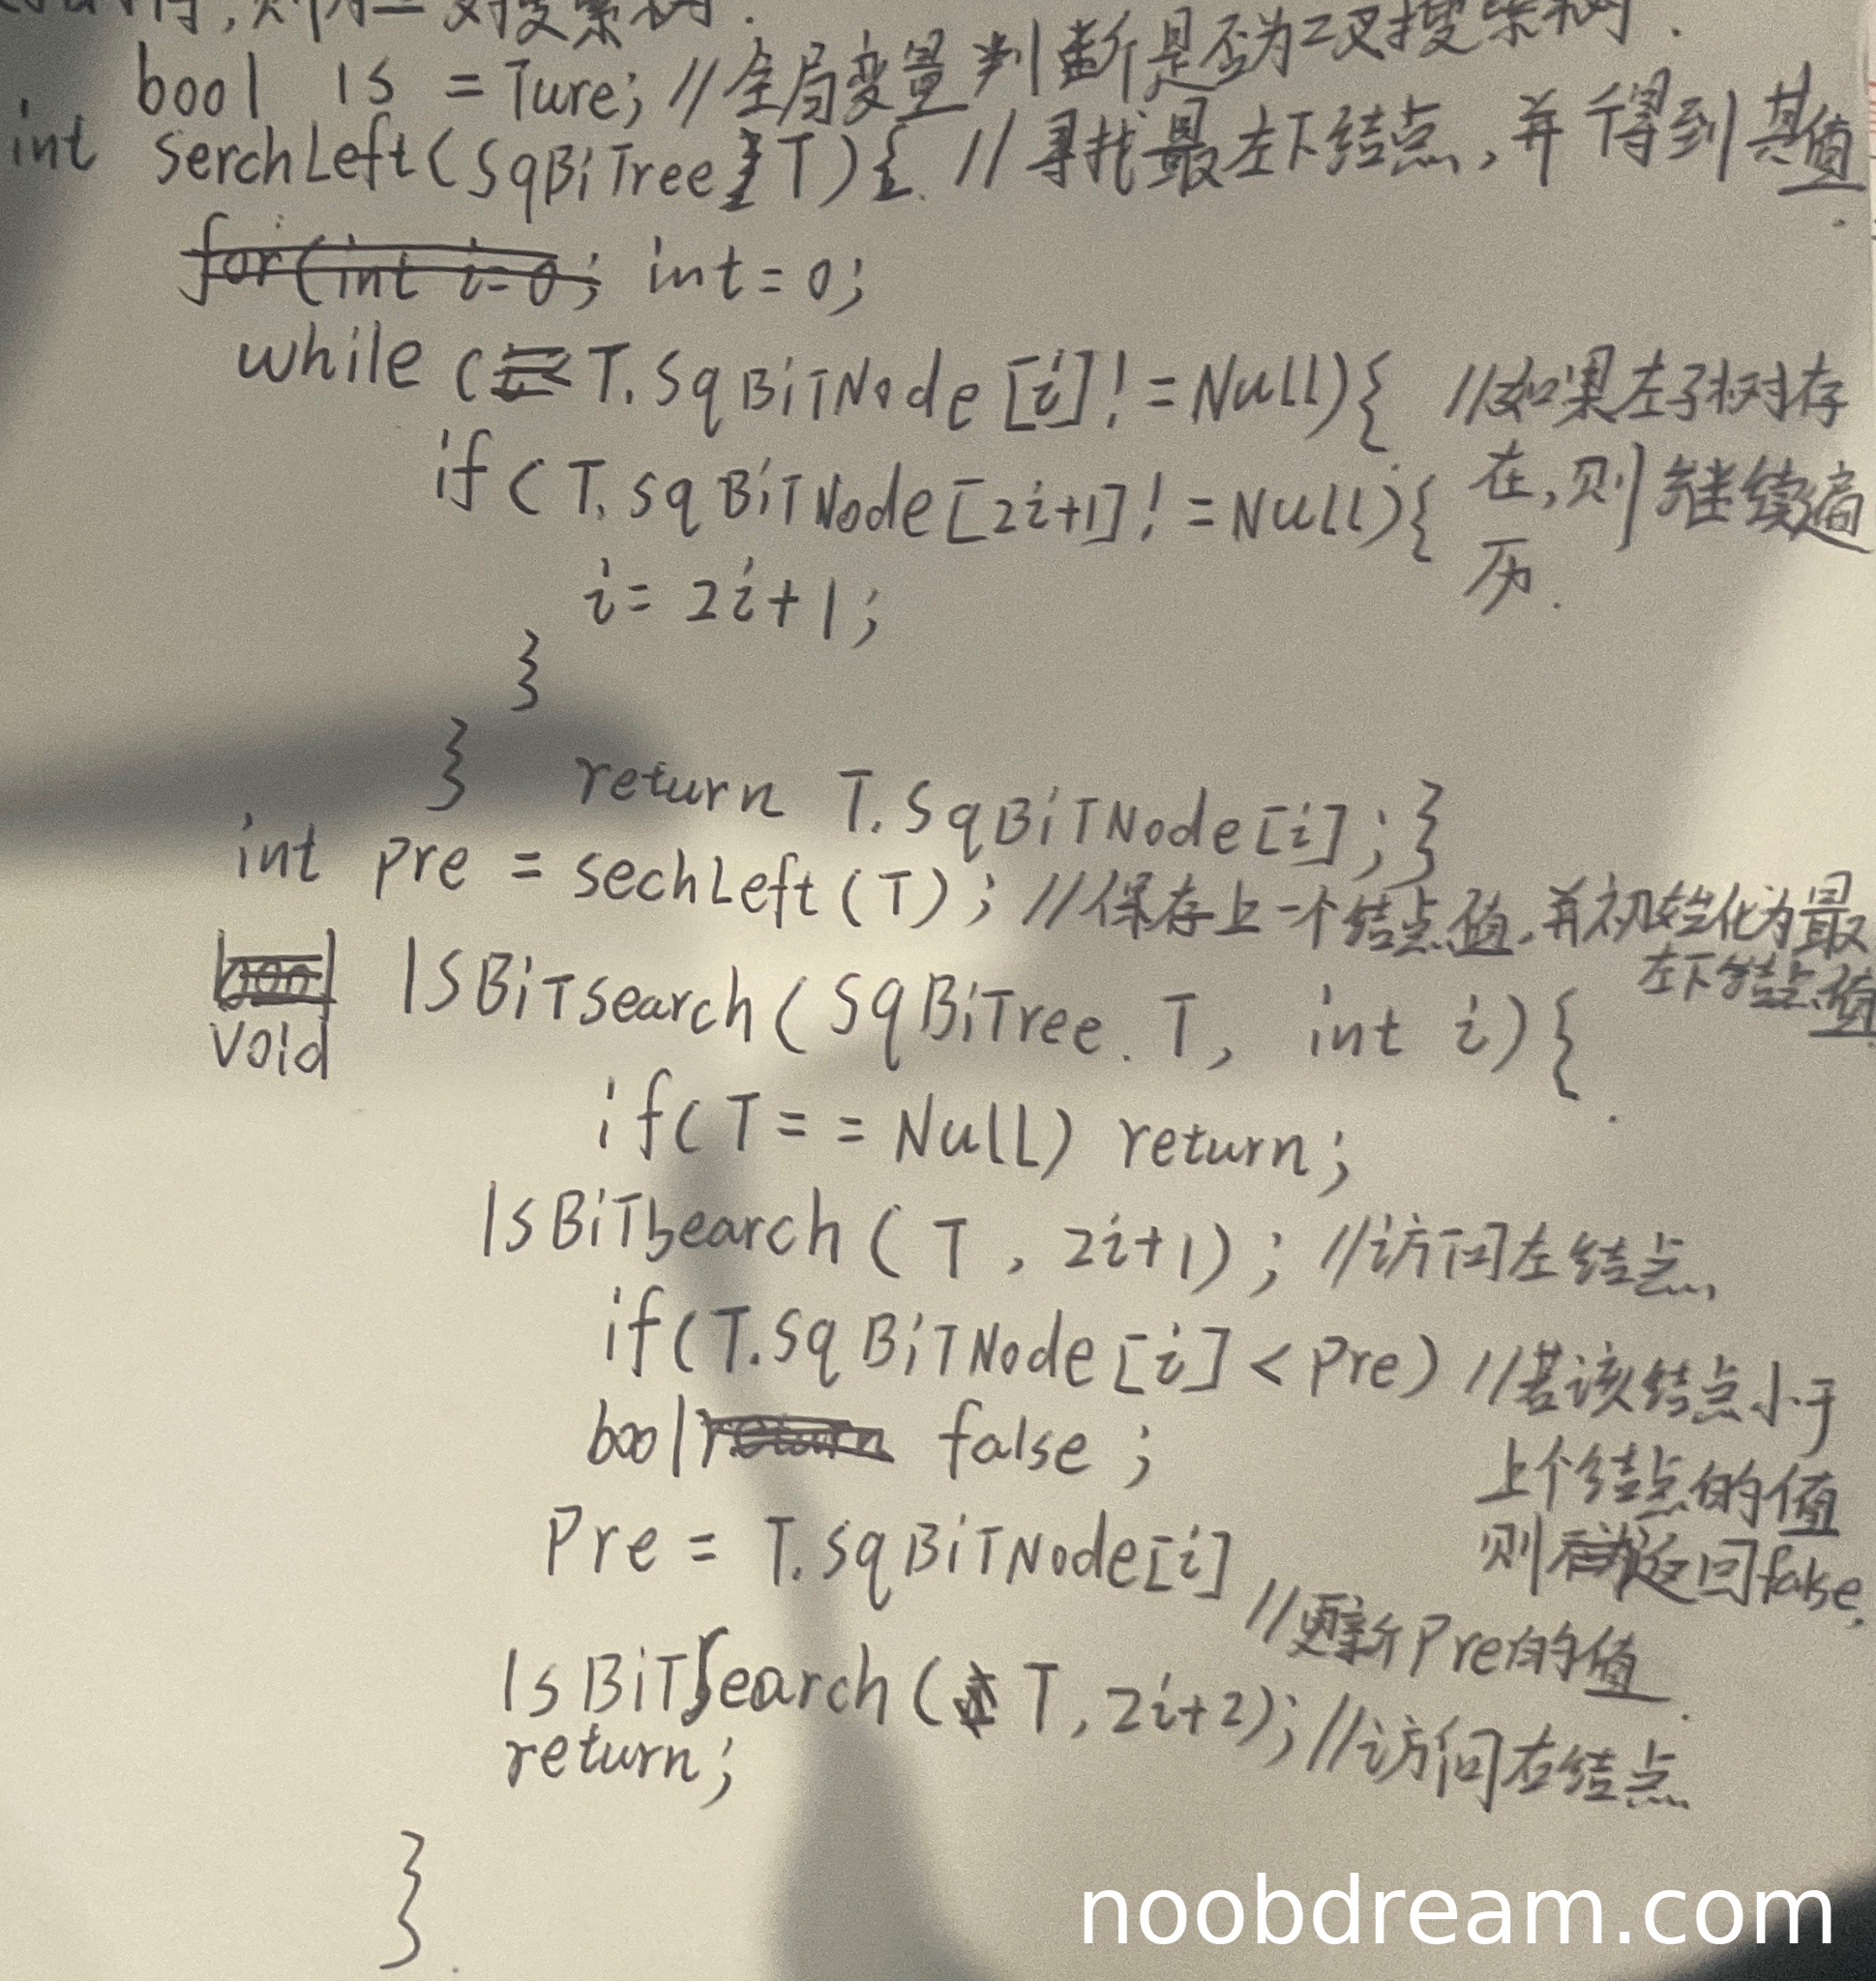 ,则为二叉搜索树.
bool IS = Ture; //全局变量判断是否为二叉搜索树.
int serchLeft(SqBiTree T){ //寻找最左下结点,并得到其值.
for(int i=0; int=0;
while (T.SqBiTNode[i]!=Null){ //如果左子树存
if(T.SqBiTNode[2i+1]!=Null){ 在,则继续遍
i=2i+1; 历.
}
} return T.SqBiTNode[i];}
int pre = sechLeft(T); //保存上一个结点值,并初始化为最
左下结点值.
bool ISBiTSearch(SqBiTree.T, int i){
void
if(T==Null) return;
ISBiTSearch(T, 2i+1); //访问左结点
if(T.SqBiTNode[i]<Pre) //若该结点小于
bool return false; 上个结点的值
Pre = T.SqBiTNode[i] 则返回false,
//更新Pre的值.
IsBiTSearch(T,2i+2); //访问右结点
return;
}
noobdream.com